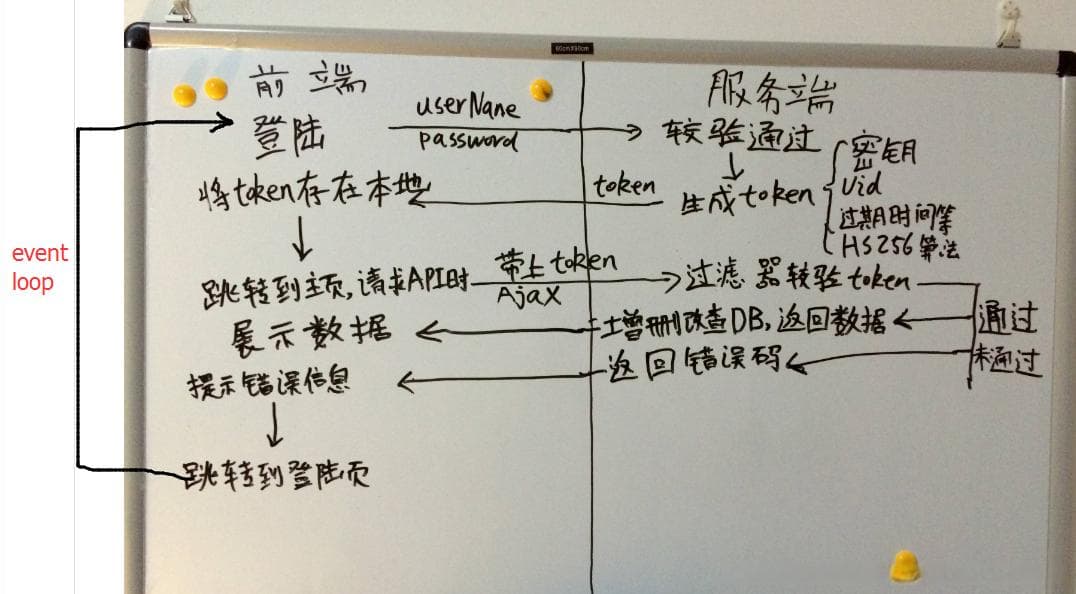 60cmX90cm
前端
服务端
登陆
userName
password
较验通过
将token存在本地
token
生成token
密钥
Uid
过期时间等
HS256算法
event
loop
跳转到主页,请求API时
带上token
Ajax
过滤器较验token
展示数据
增删改查DB,返回数据
通过
提示错误信息
返回错误码
未通过
跳转到登陆页